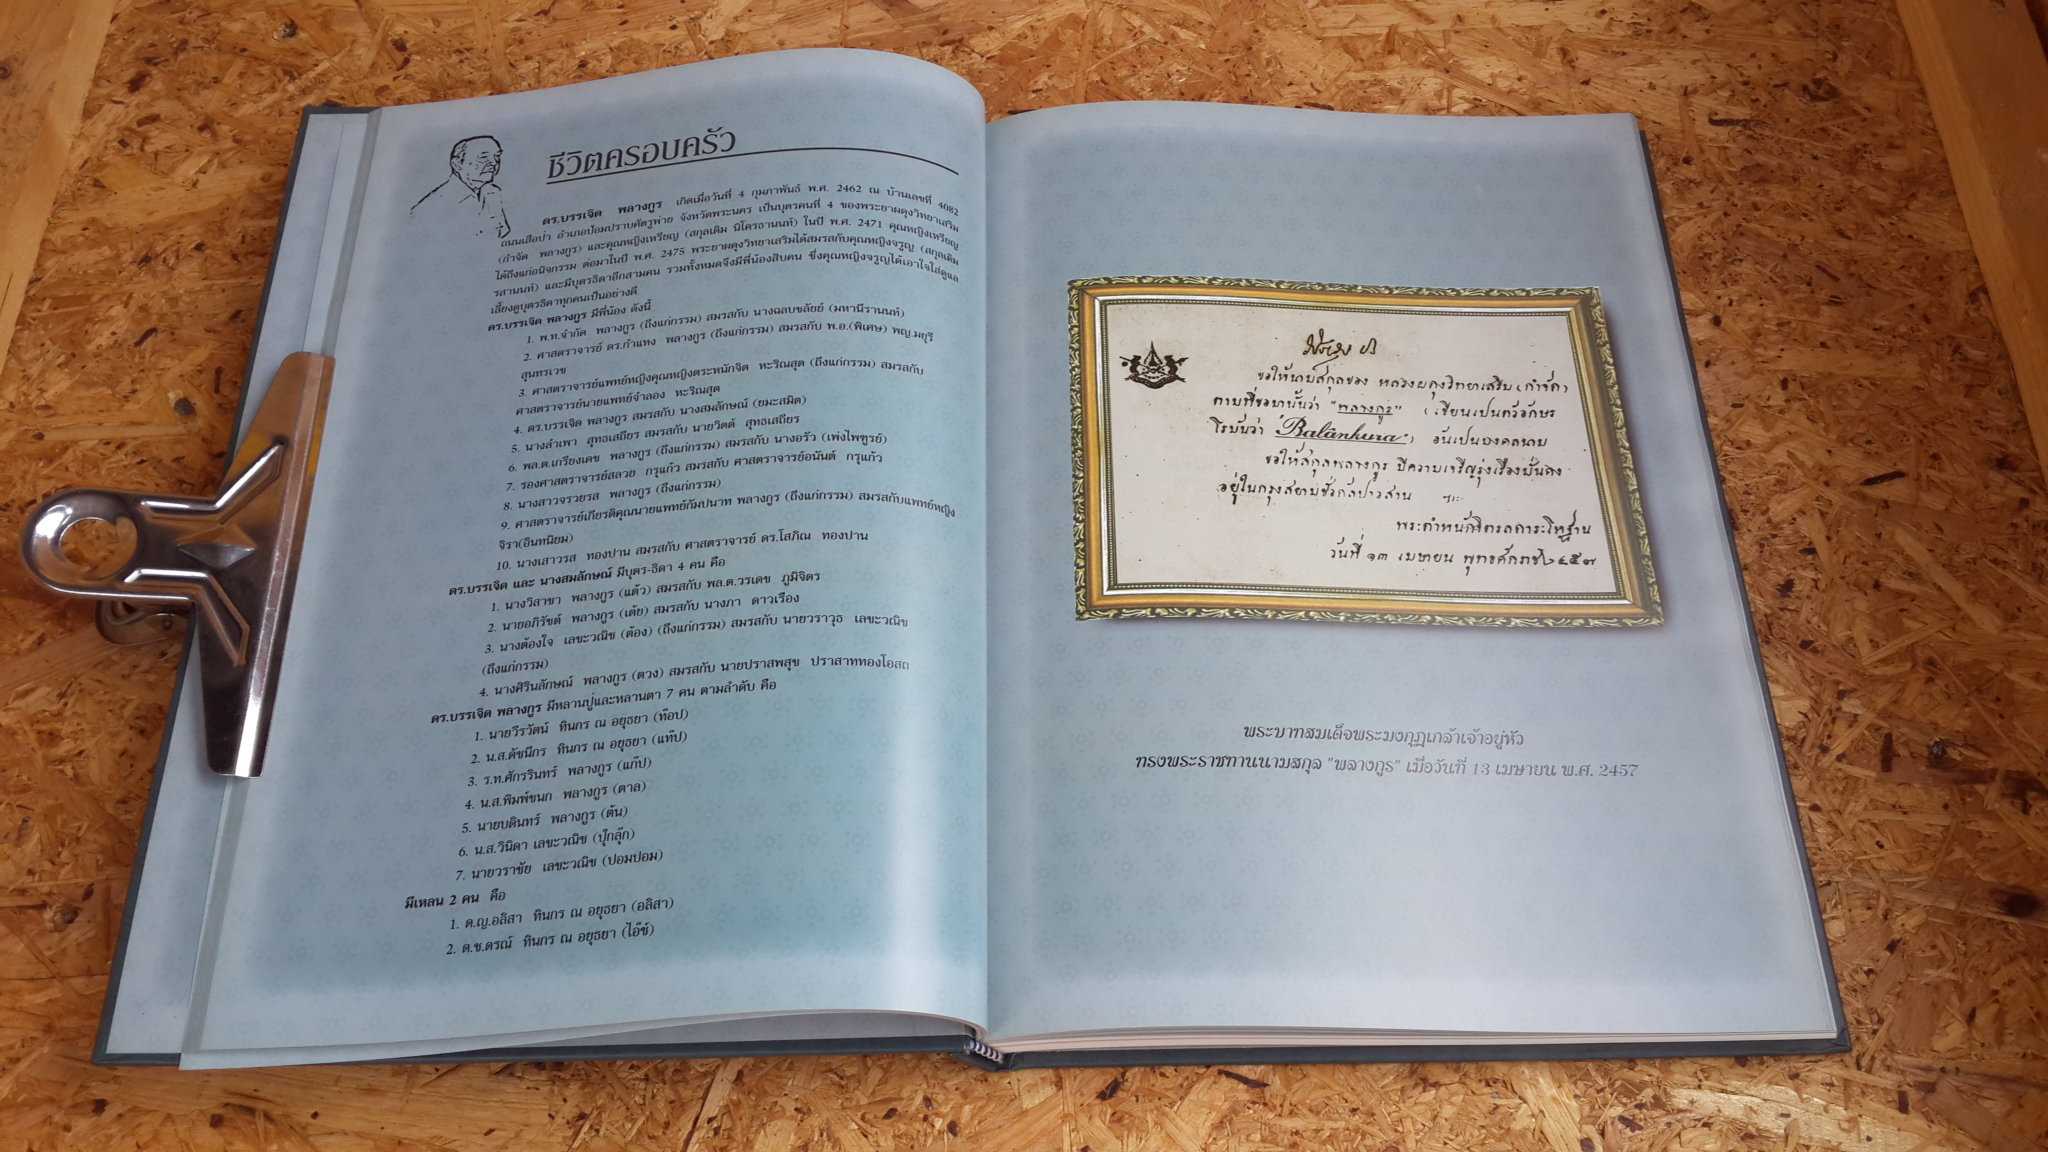 ชีวิตครอบครัว
ดร.บรรเจิด พลางกูร เกิดเมื่อวันที่ 4 กุมภาพันธ์ พ.ศ. 2462 ณ บ้านเลขที่ 4082
ถนนเสือป่า อำเภอป้อมปราบศัตรูพ่าย จังหวัดพระนคร เป็นบุตรคนที่ 4 ของพระยาผดุงวิทยาเสริม
(กำจัด พลางกูร) และคุณหญิงเหรียญ (สกุลเดิม นิโครธานนท์) ในปี พ.ศ. 2471 คุณหญิงเหรียญ
ได้ถึงแก่อนิจกรรม ต่อมาในปี พ.ศ. 2475 พระยาผดุงวิทยาเสริมได้สมรสกับคุณหญิงจรูญ (สกุลเดิม
รสานนท์) และมีบุตรธิดาอีกสามคน รวมทั้งหมดจึงมีพี่น้องสิบคน ซึ่งคุณหญิงจรูญได้เอาใจใส่ดูแล
เลี้ยงดูบุตรธิดาทุกคนเป็นอย่างดี
ดร.บรรเจิด พลางกูร มีพี่น้อง ดังนี้
1. พ.ท.จำกัด พลางกูร (ถึงแก่กรรม) สมรสกับ นางฉลบชลัยย์ (มหานีรานนท์)
2. ศาสตราจารย์ ดร.กำแหง พลางกูร (ถึงแก่กรรม) สมรสกับ พ.อ.(พิเศษ) พญ.มยุรี
สุนทรเวช
3. ศาสตราจารย์แพทย์หญิงคุณหญิงตระหนักจิต หะริณสุต (ถึงแก่กรรม) สมรสกับ
ศาสตราจารย์นายแพทย์จำลอง หะริณสุต
4. ดร.บรรเจิด พลางกูร สมรสกับ นางสมลักษณ์ (ยมะสมิต)
5. นางลำเพา สุทธเสถียร สมรสกับ นายวิตต์ สุทธเสถียร
6. พล.ต.เกรียงเดช พลางกูร (ถึงแก่กรรม) สมรสกับ นางอรัว (เพ่งไพฑูรย์)
7. รองศาสตราจารย์สลวย กรุแก้ว สมรสกับ ศาสตราจารย์อนันต์ กรุแก้ว
8. นางสาวจรวยรส พลางกูร (ถึงแก่กรรม)
9. ศาสตราจารย์เกียรติคุณนายแพทย์กัมปนาท พลางกูร (ถึงแก่กรรม) สมรสกับแพทย์หญิง
จิรา(อินทนิยม)
10. นางเสาวรส ทองปาน สมรสกับ ศาสตราจารย์ ดร.โสภิณ ทองปาน
ดร.บรรเจิด และ นางสมลักษณ์ มีบุตร-ธิดา 4 คน คือ
1. นางวิสาขา พลางกูร (แต้ว) สมรสกับ พล.ต.วรเดช ภูมิจิตร
2. นายอภิรัชต์ พลางกูร (เต้ย) สมรสกับ นางภา ดาวเรือง
3. นางต้องใจ เลขะวณิช (ต้อง) (ถึงแก่กรรม) สมรสกับ นายวราวุธ เลขะวณิช
(ถึงแก่กรรม)
4. นางศิรินลักษณ์ พลางกูร (ตวง) สมรสกับ นายปราสพสุข ปราสาททองโอสถ
ดร.บรรเจิด พลางกูร มีหลานปู่และหลานตา 7 คน ตามลำดับ คือ
1. นายวีรวัฒน์ ทินกร ณ อยุธยา (ท๊อป)
2. น.ส.ดัชนีกร ทินกร ณ อยุธยา (แท๊ป)
3. ร.ท.ศักรรินทร์ พลางกูร (แก๊ป)
4. น.ส.พิมพ์ชนก พลางกูร (ตาล)
5. นายบดินทร์ พลางกูร (ต้น)
6. น.ส.วินิดา เลขะวณิช (ปุ๊กลุ๊ก)
7. นายวราชัย เลขะวณิช (ปอมปอม)
มีเหลน 2 คน คือ
1. ด.ญ.อลิสา ทินกร ณ อยุธยา (อลิสา)
2. ด.ช.ดรณ์ ทินกร ณ อยุธยา (ไอ๊ซ์)
ขอให้นามสกุลของ หลวงผดุงวิทยาเสริม (กำจัด)
ตามที่ขอมานั้นว่า "พลางกูร" (เขียนเป็นตัวอักษร
โรมันว่า "Balânkura") อันเป็นมงคลนาม
ขอให้สกุลพลางกูร มีความเจริญรุ่งเรืองมั่นคง
อยู่ในกรุงสยามชั่วกัลปาวสาน ฯะ
พระตำหนักจิตรลดาระโหฐาน
วันที่ ๑๓ เมษายน พุทธศักราช ๒๔๕๗
พระบาทสมเด็จพระมงกุฎเกล้าเจ้าอยู่หัว
ทรงพระราชทานนามสกุล "พลางกูร" เมื่อวันที่ 13 เมษายน พ.ศ. 2457